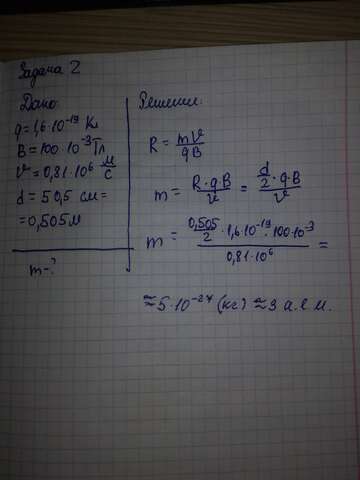 Задача 2
Дано:
q=1,6·10⁻¹⁹ Кл
B=100·10⁻³ Тл
v=0,81·10⁶ м/с
d=50,5 см=
=0,505м
m-?
Решение:
R = mv/qB
m = R·q·B/v = d/2·q·B/v
m = 0,505/2·1,6·10⁻¹⁹·100·10⁻³/0,81·10⁶ =
≈5·10⁻²⁷ (кг) ≈3 а.е.м.